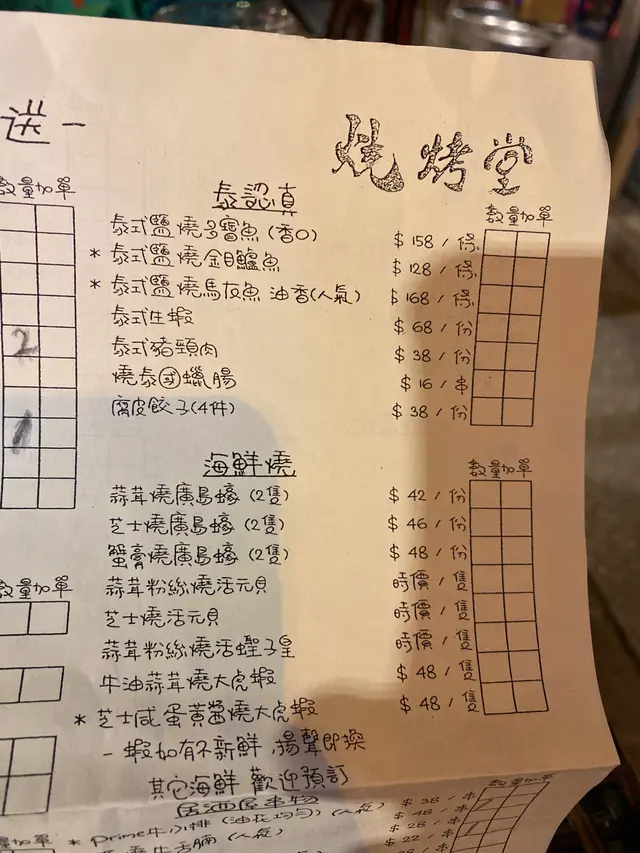 送一
燒烤堂
數量加單
泰認真
數量加單
泰式鹽燒多寶魚(香口) $158/條
* 泰式鹽燒金目鱸魚 $128/條
* 泰式鹽燒馬友魚 油香(人氣) $168/條
泰式生蝦 $68/份
2 泰式豬頸肉 $38/份
燒泰國蠟腸 $16/串
1 腐皮餃子(4件) $38/份
海鮮燒
數量加單
蒜茸燒廣島蠔(2隻) $42/份
芝士燒廣島蠔(2隻) $46/份
蟹膏燒廣島蠔(2隻) $48/份
數量加單
蒜茸粉絲燒活元貝 時價/隻
芝士燒活元貝 時價/隻
蒜茸粉絲燒活蟶子皇 時價/隻
牛油蒜茸燒大虎蝦 $48/隻
* 芝士咸蛋黃醬燒大虎蝦 $48/隻
- 蝦如有不新鮮,揚聲即換
其它海鮮 歡迎預訂
居酒屋串物
數量加單
數量加單
* prime牛小排(油花均勻)(人氣) $38/串
牛舌腩(人氣) $48/
$28/
$22/